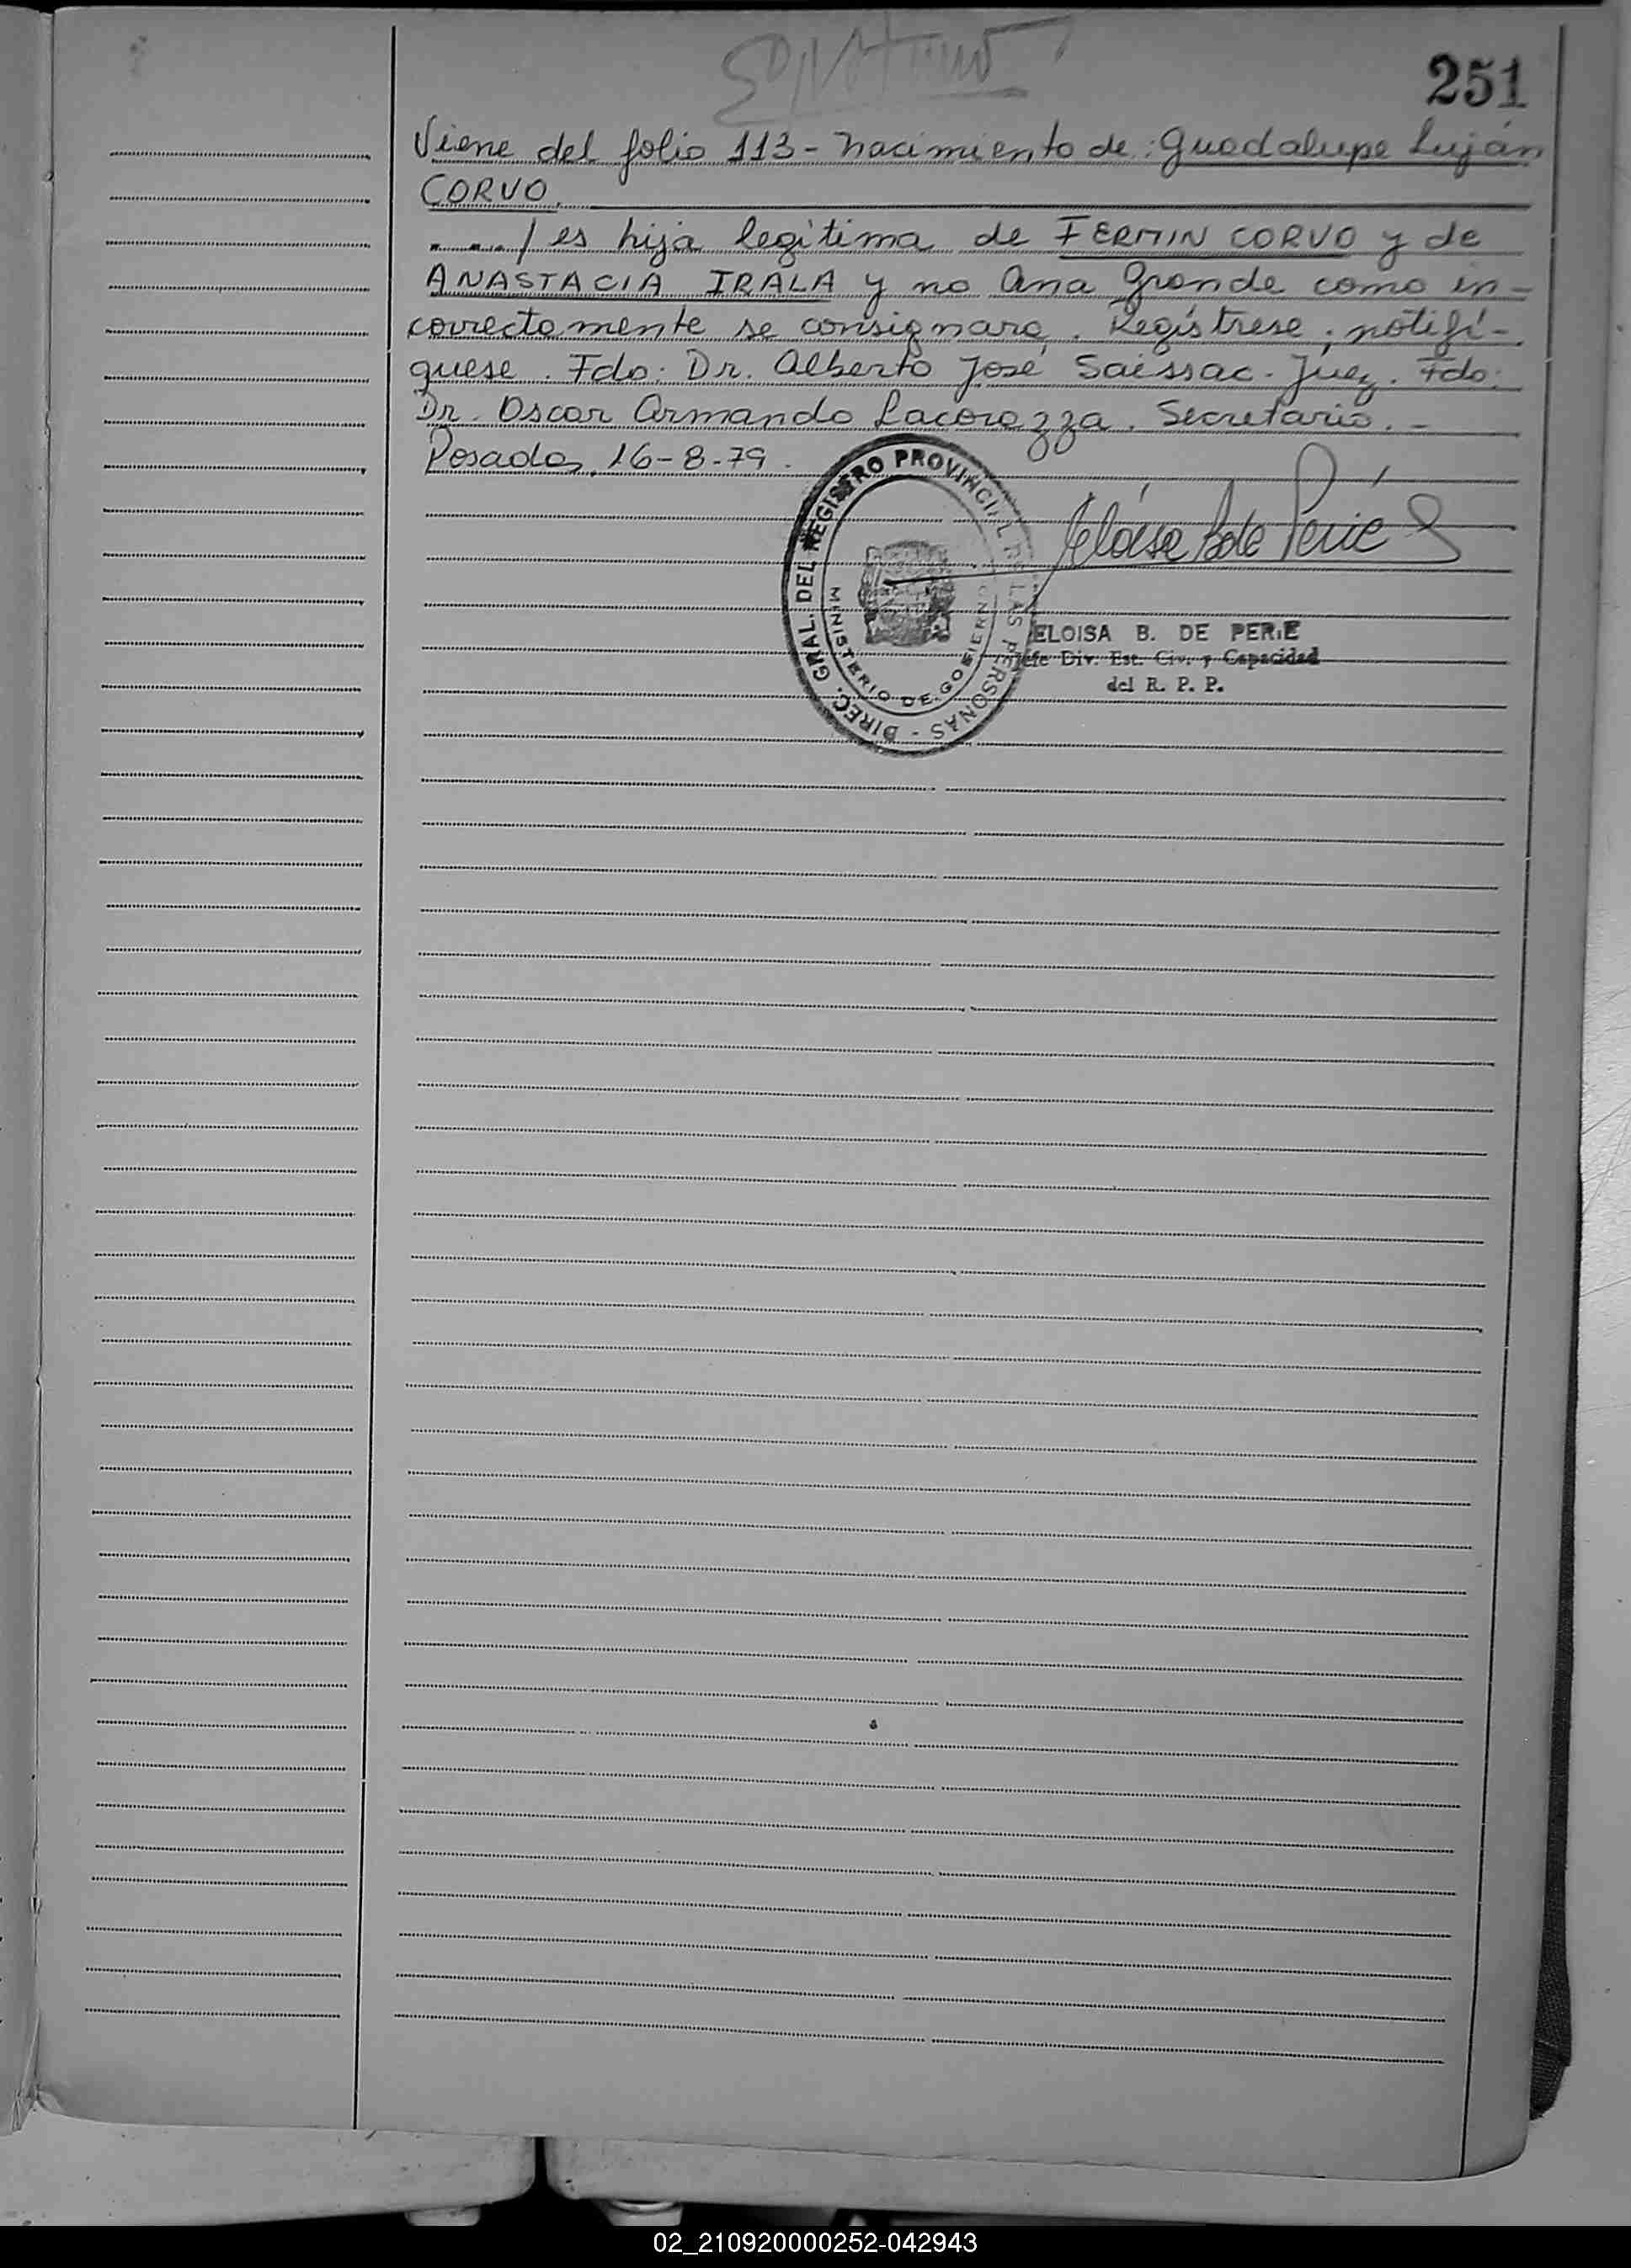 251
Viene del folio 113 - Nacimiento de: Guadalupe Luján
CORVO.
. . . / es hija legítima de FERMIN CORVO y de
ANASTACIA IRALA y no Ana Grande como in-
correctamente se consignara. Regístrese, notifí-
quese. Fdo: Dr. Alberto José Saissac - Juez. Fdo:
Dr. Oscar Armando Lacorozza. Secretario. -
Posadas, 16-8-79.
DIREC. GRAL. DEL REGISTRO PROVINCIAL DE LAS PERSONAS -
MINISTERIO DE GOBIERNO
Eloisa B de Perié
ELOISA B. DE PERIE
Jefe Div. Est. Civ. y Capacidad
del R. P. P.
02_210920000252-042943